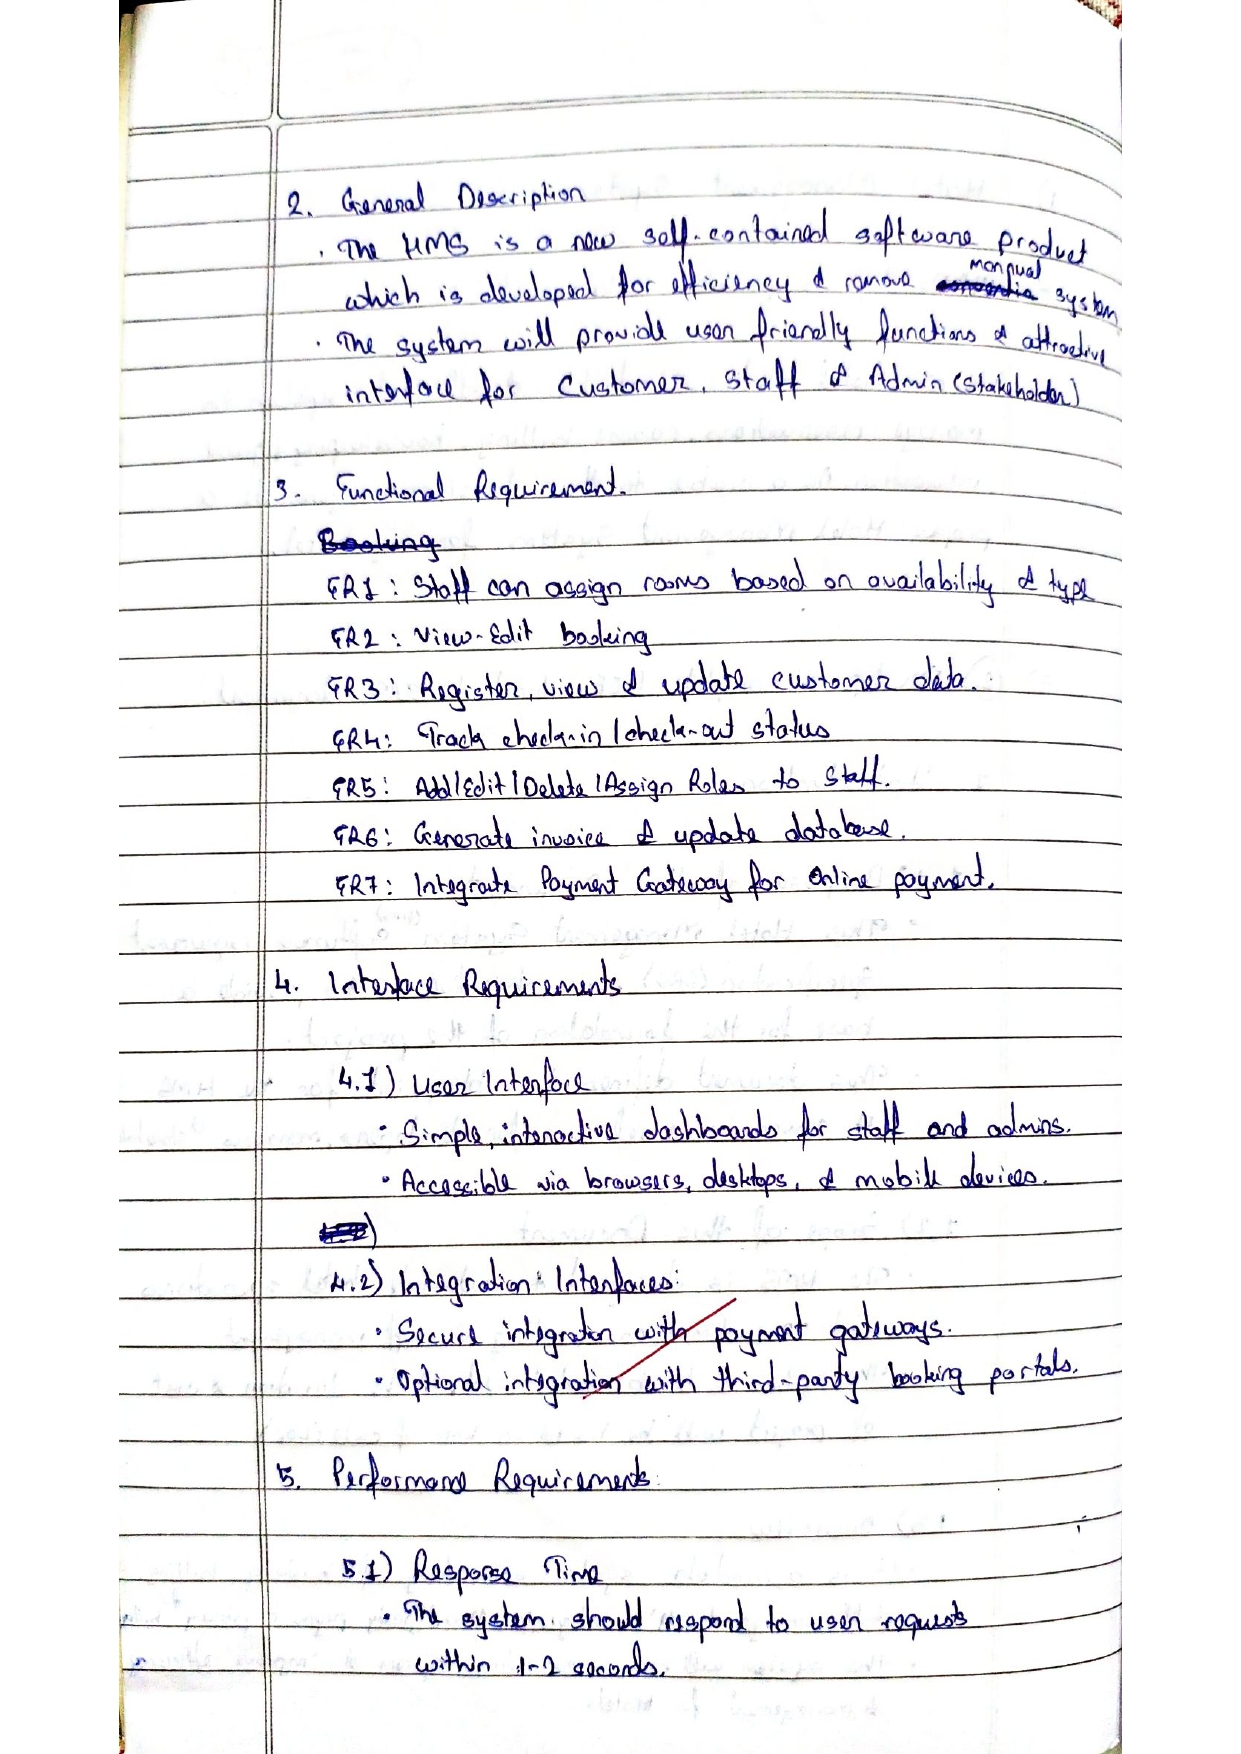 2. General Description
. The HMS is a new self-contained software product
which is developed for efficiency & remove manual system
. The system will provide user friendly functions & attractive
interface for Customer, Staff & Admin (Stakeholder)
3. Functional Requirement.
Booking
FR1 : Staff can assign rooms based on availability & type
FR2 : View-Edit booking
FR3 : Register, view & update customer data.
FR4: Track check-in / check-out status
FR5 : Add/Edit/Delete/Assign Roles to Staff.
FR6 : Generate invoice & update database.
FR7 : Integrate Payment Gateway for Online payment.
4. Interface Requirements
4.1) User Interface
• Simple, interactive dashboards for staff and admins.
• Accessible via browsers, desktops, & mobile devices.
4.2) Integration Interfaces:
• Secure integration with payment gateways.
• Optional integration with third-party booking portals.
5. Performance Requirements
5.1) Response Time
• The system should respond to user requests
within 1-2 seconds.